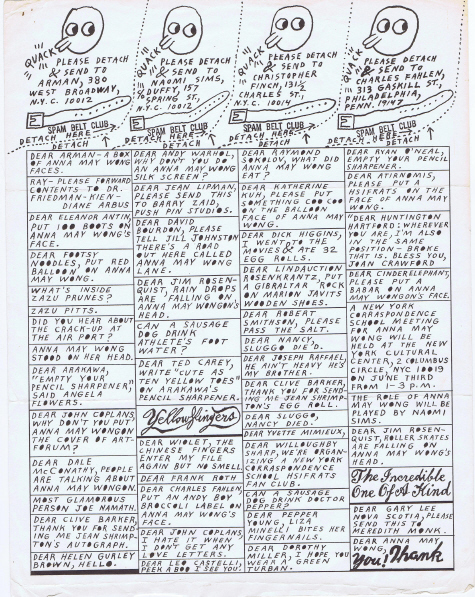 QUACK
PLEASE DETACH
& SEND TO
ARMAN, 380
WEST BROADWAY,
N.Y.C. 10012
SPAM BELT CLUB
DETACH HERE
DETACH
QUACK
PLEASE DETACH
& SEND TO
NAOMI SIMS,
% DUFFY, 157
SPRING ST,
N.Y.C. 10012
SPAM BELT CLUB
DETACH HERE
DETACH
QUACK
PLEASE DETACH
& SEND TO
CHRISTOPHER
FINCH, 131½
CHARLES ST,
N.Y.C. 10014
SPAM BELT CLUB
DETACH HERE
DETACH
QUACK
PLEASE DETACH
& SEND TO
CHARLES FAHLEN,
313 GASKILL ST,
PHILADELPHIA,
PENN. 19147
SPAM BELT CLUB
DETACH HERE
DETACH
DEAR ARMAN- A BOX
OF ANNA MAY WONG
FACES.
RAY- PLEASE FORWARD
CONTENTS TO DR.
FRIEDMAN-HIEN-
DIANE ARBUS
DEAR ELEANOR ANTIN,
PUT 100 BOOTS ON
ANNA MAY WONG'S
FACE.
DEAR FOOTSY
NOODLES, PUT RED
BALLOON ON ANNA
MAY WONG.
WHAT'S INSIDE
ZAZU PRUNES?
ZAZU PITTS.
DID YOU HEAR ABOUT
THE CRACK-UP AT
THE AIR PORT?
ANNA MAY WONG
STOOD ON HER HEAD.
DEAR ARAKAWA,
"EMPTY YOUR
PENCIL SHARPENER,"
SAID ANGELA
FLOWERS.
DEAR JOHN COPLANS,
WHY DON'T YOU PUT
ANNA MAY WONG ON
THE COVER OF ART-
FORUM?
DEAR DALE
McCONATHY, PEOPLE
ARE TALKING ABOUT
ANNA MAY WONG.
MOST GLAMOROUS
PERSON JOE NAMATH.
DEAR CLIVE BARKER,
THANK YOU FOR SEND-
ING ME JEAN SHRIMP-
TON'S AUTOGRAPH.
DEAR HELEN GURLEY
BROWN, HELLO.
DEAR ANDY WARHOL,
WHY DON'T YOU DO
AN ANNA MAY WONG
SILK SCREEN?
DEAR JEAN LIPMAN,
PLEASE SEND THIS
TO BARRY ZAID,
PUSH PIN STUDIOS.
DEAR DAVID
BOURDON, PLEASE
TELL JILL JOHNSTON
THERE'S A ROAD
OUT HERE CALLED
ANNA MAY WONG
LANE.
DEAR JIM ROSEN-
QUIST, RAIN DROPS
ARE FALLING ON
ANNA MAY WONG'S
HEAD.
CAN A SAUSAGE
DOG DRINK
ATHLETE'S FOOT
WATER?
DEAR TED CAREY,
WRITE "CUTE AS
TEN YELLOW TOES"
ON ARAKAWA'S
PENCIL SHARPENER.
Yellow fingers
DEAR WIOLET, THE
CHINESE FINGERS
ENTER MY FILE
AGAIN BUT NO SMELL.
DEAR FRANK ROTH
DEAR CHARLES FAHLEN
PUT AN ANDY BOY
BROCCOLI LABEL ON
ANNA MAY WONG'S
FACE.
DEAR JOHN COPLANS,
I HATE IT WHEN
I DON'T GET ANY
LOVE LETTERS.
DEAR LEO CASTELLI,
PEEK A BOO I SEE YOU.
DEAR RAYMOND
SOKOLOV, WHAT DID
ANNA MAY WONG
EAT?
DEAR KATHERINE
KUH, PLEASE PUT
SOMETHING COO COO
ON THE BALLOON
FACE OF ANNA MAY
WONG.
DEAR DICK HIGGINS,
I WENT TO THE
MOVIES & ATE 32
EGG ROLLS.
DEAR LINDAUCTION
ROSENKRANTZ, PUT A
GIBRALTAR "ROCK"
ON MARION JAVITS
WOODEN SHOES.
DEAR ROBERT
SMITHSON, PLEASE
PASS THE SALT.
DEAR NANCY,
SLUGGO DIE'D.
DEAR JOSEPH RAFFAEL,
HE AIN'T HEAVY HE'S
MY BROTHER.
DEAR CLIVE BARKER,
THANK YOU FOR SEND-
ING ME JEAN SHRIMP-
TON'S EGG ROLL.
DEAR SLUGGO,
NANCY DIED.
DEAR YVETTE MIMIEUX,
DEAR WILLOUGHBY
SHARP, WE'RE ORGAN-
IZING A NEW YORK
CORRESPONDENCE
SCHOOL HSIFRATS
FAN CLUB.
CAN A SAUSAGE
DOG DRINK DOCTOR
PEPPER?
DEAR PEPPER
YOUNG, LIZA
MINELLI BITES HER
FINGERNAILS.
DEAR DOROTHY
MILLER, I HOPE YOU
WEAR A GREEN
TURBAN.
DEAR RYAN O'NEAL,
EMPTY YOUR PENCIL
SHARPENER.
DEAR ATIRNOMIS,
PLEASE PUT A
HSIFRATS ON THE
FACE OF ANNA MAY
WONG.
"DEAR HUNTINGTON
HARTFORD: WHEREVER
YOU ARE, I'M ALSO
IN THE SAME
POSITION - BROKE
THAT IS. BLESS YOU,
JOAN CRAWFORD
DEAR CINDERELEPHANT,
PLEASE PUT A
BABAR ON ANNA
MAY WONGSON FACE.
A NEW YORK
CORRESPONDANCE
SCHOOL MEETING
FOR ANNA MAY
WONG WILL BE
HELD AT THE NEW
YORK CULTURAL
CENTER, 2 COLUMBUS
CIRCLE, NYC 10019
ON JUNE THIRD
FROM 1-3 P.M.
THE ROLE OF ANNA
MAY WONG WILL BE
PLAYED BY NAOMI
SIMS.
DEAR JIM ROSEN-
QUIST, ROLLER SKATES
ARE FALLING ON
ANNA MAY WONG'S
HEAD.
The Incredible
One Of A Kind
DEAR GARY LEE
NOVA SCOTIA, PLEASE
SEND THIS TO
MEREDITH MONK.
DEAR ANNA MAY
WONG,
You! Thank